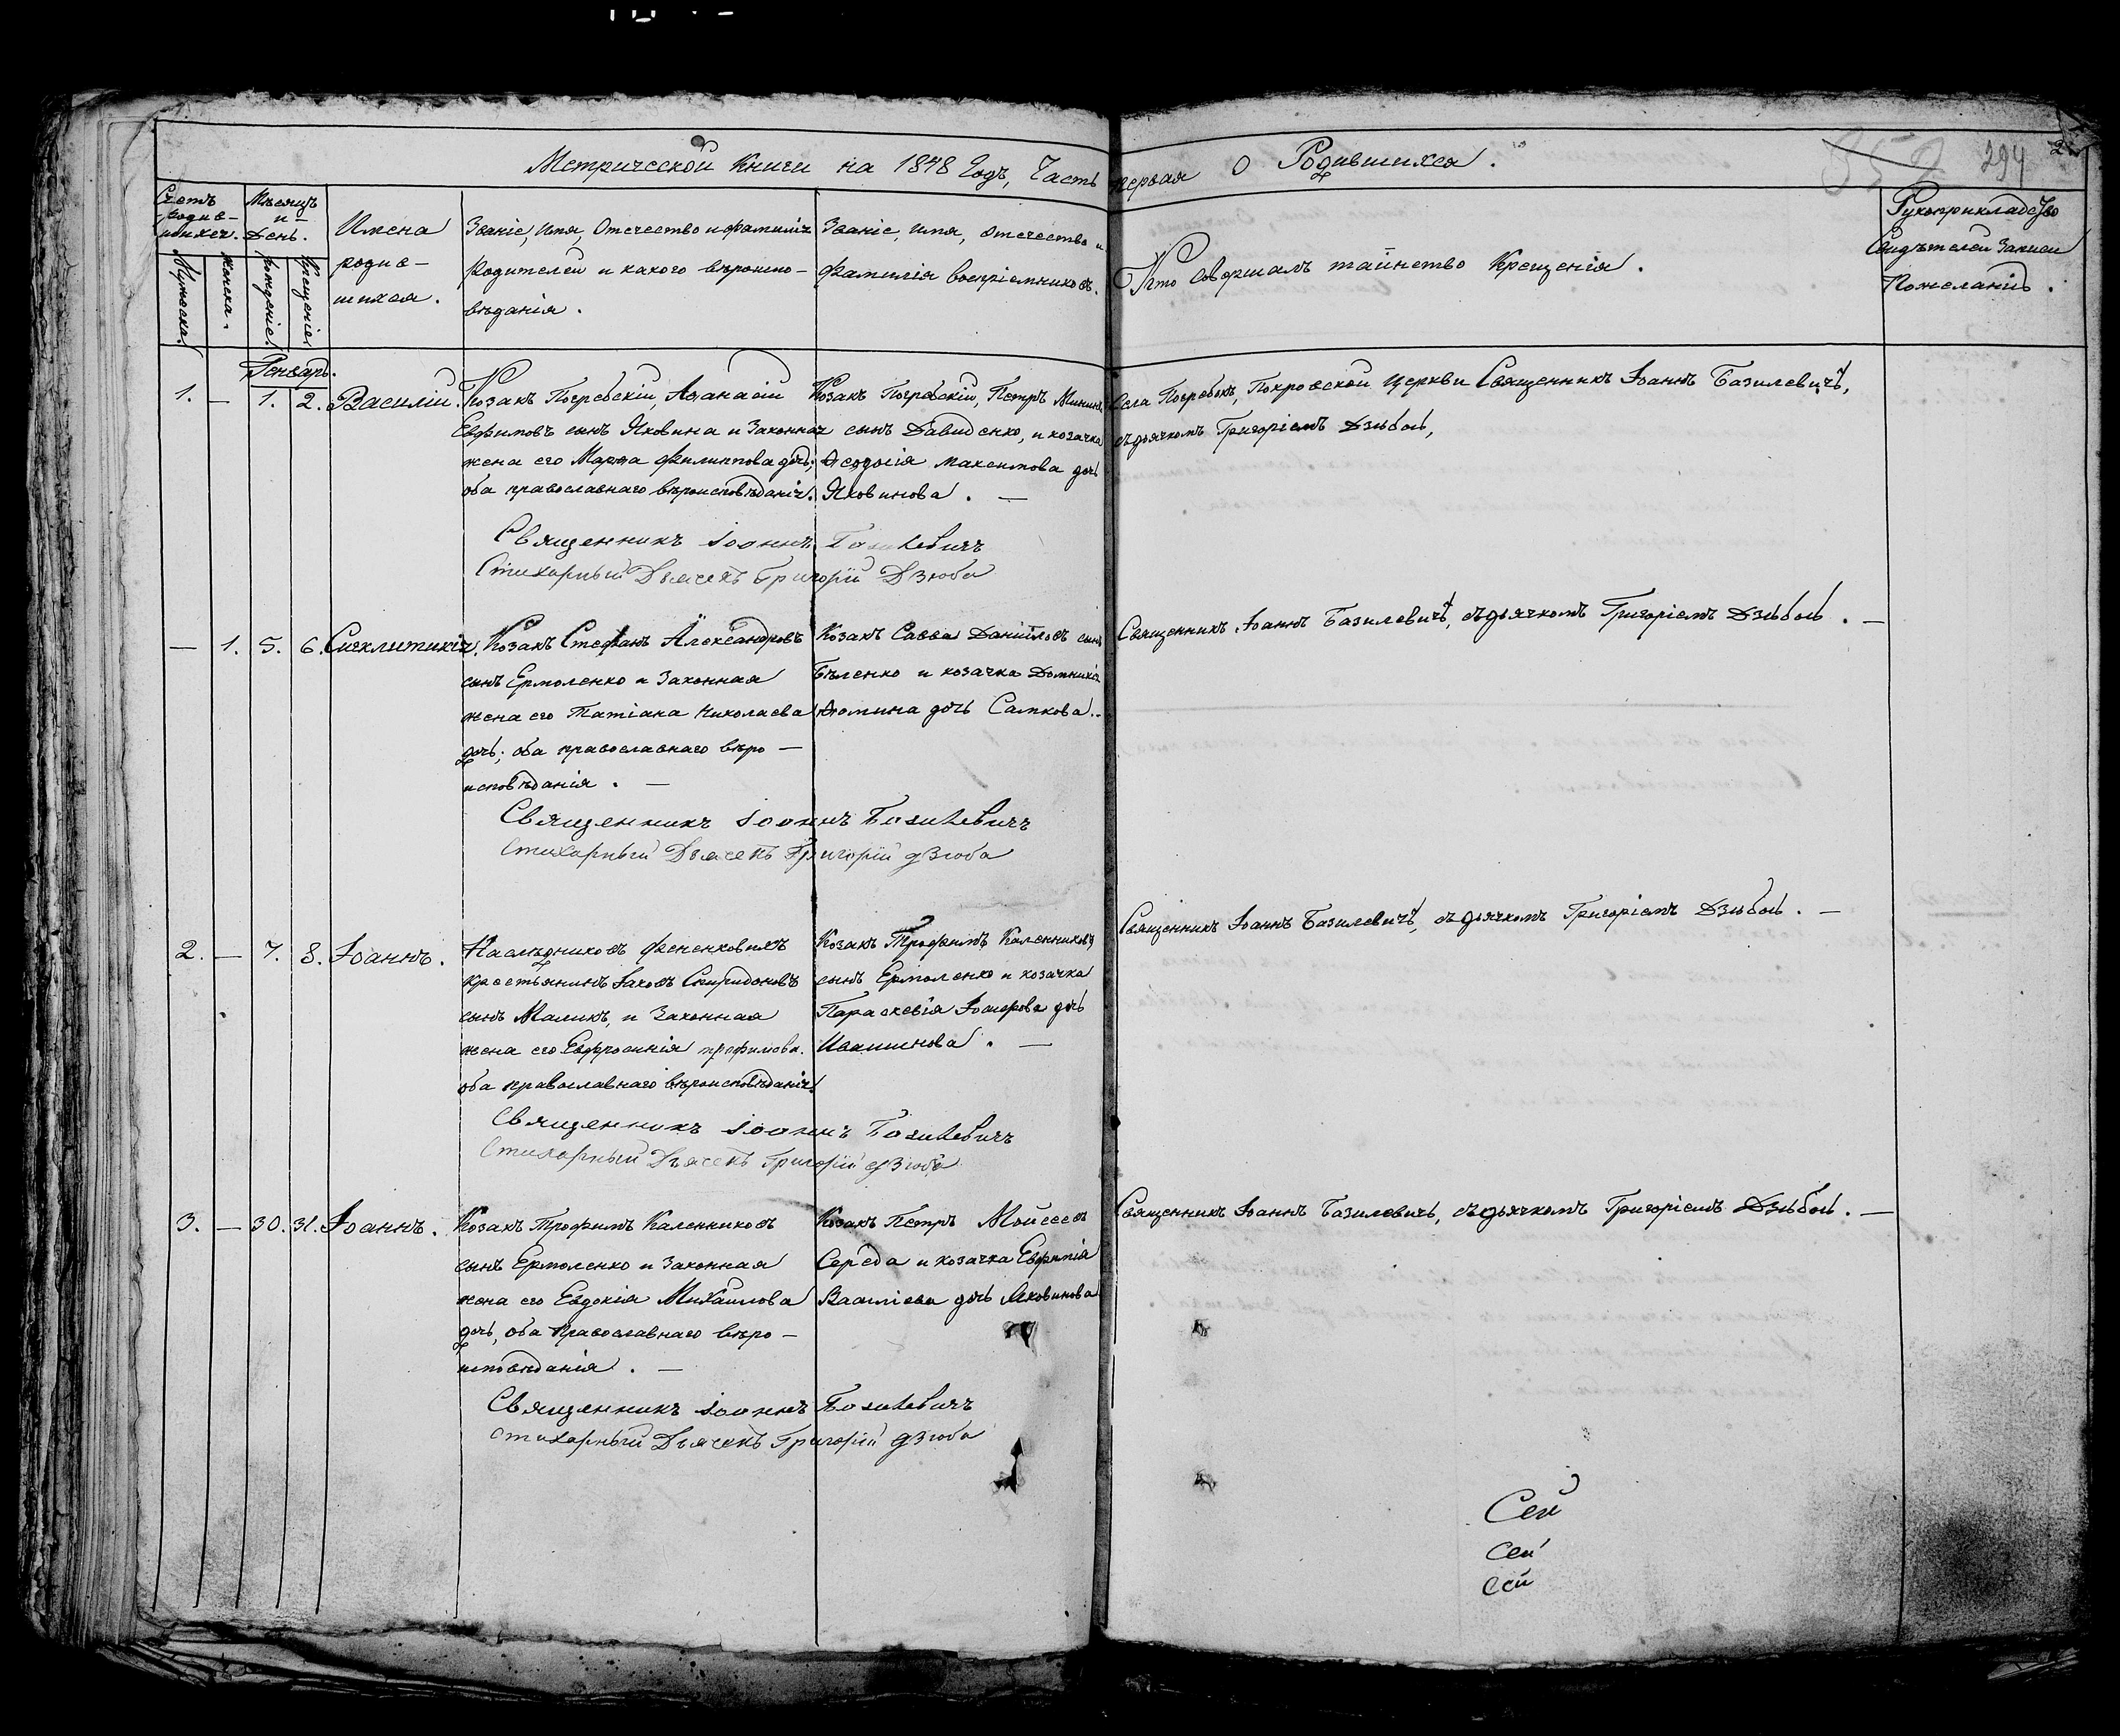 Метрической Книги на 1848 Годъ, Часть первая О Родившихся.
294
Счетъ родив-шихся.
Мужеска.
Женска.
Мѣсяцъ и День.
рожденіе.
Крещеніе.
Имена родив-шихся.
Званіе, Имя, Отечество и фамилія
Родителей и какого вѣроиспо-
вѣданія.
Званіе, имя, отечество и
фамилія воспріемниковъ.
Кто Совершалъ таинство Крещенія.
Рукоприкладство
Свидѣтелей Записи
Пожеланію.
Генварь.
1. — 1. 2. Василій.
Козакъ Погребскій, Аѳанасій
Евфимовъ сынъ Яковина и Законная
жена его Марѳа Филиппова дочь;
оба православнаго вѣроисповѣданія.
Козакъ Погребскій, Петръ Мининъ
сынъ Давиденко, и козачка
Ѳеодосія Максимова дочь
Яковинова. —
Села Погребокъ, Покровской Церкви Священникъ Іоаннъ Базилевичъ,
съ дьячкомъ Григоріемъ Дзюбою,
Священникъ Іоаннъ Базилевичъ
Стихарный Дьячекъ Григорій Дзюба
— 1. 5. 6. Сигклитикія.
Козакъ Стефанъ Александровъ
сынъ Ермоленко и Законная
жена его Татіана Николаева
дочь; оба православнаго вѣро —
исповѣданія. —
Козакъ Савва Даніиловъ сынъ
Бѣленко и козачка Домникія
Ѳомина дочь Сапкова..
Священникъ Іоаннъ Базилевичъ, съ дьячкомъ Григоріемъ Дзюбою. —
Священникъ Іоаннъ Базилевичъ
Стихарный Дьячекъ Григорій Дзюба
2. — 7. 8. Іоаннъ.
Наслѣдниковъ Фененковыхъ
крестьянинъ Іаковъ Спиридоновъ
сынъ Маликъ, и Законная
жена его Евфросинія трофимова.
оба православнаго вѣроисповѣданія.
Козакъ Трофимъ Каленниковъ
сынъ Ермоленко и козачка
Параскевія Іосифова дочь
Ивашинова. —
Священникъ Іоаннъ Базилевичъ, съ дьячкомъ Григоріемъ Дзюбою. —
Священникъ Іоаннъ Базилевичъ
Стихарный Дьячекъ Григорій Дзюба
3. — 30. 31. Іоаннъ.
Козакъ Трофимъ Каленниковъ
сынъ Ермоленко и Законная
жена его Евдокія Михайлова
дочь, оба Православнаго вѣро —
исповѣданія. —
Козакъ Петръ Мойсеевъ
Середа и козачка Евфимія
Василіева дочь Яковинова
Священникъ Іоаннъ Базилевичъ, съ дьячкомъ Григоріемъ Дзюбою. —
Священникъ Іоаннъ Базилевичъ
Стихарный Дьячекъ Григорій Дзюба
Сей
Сей
Сей